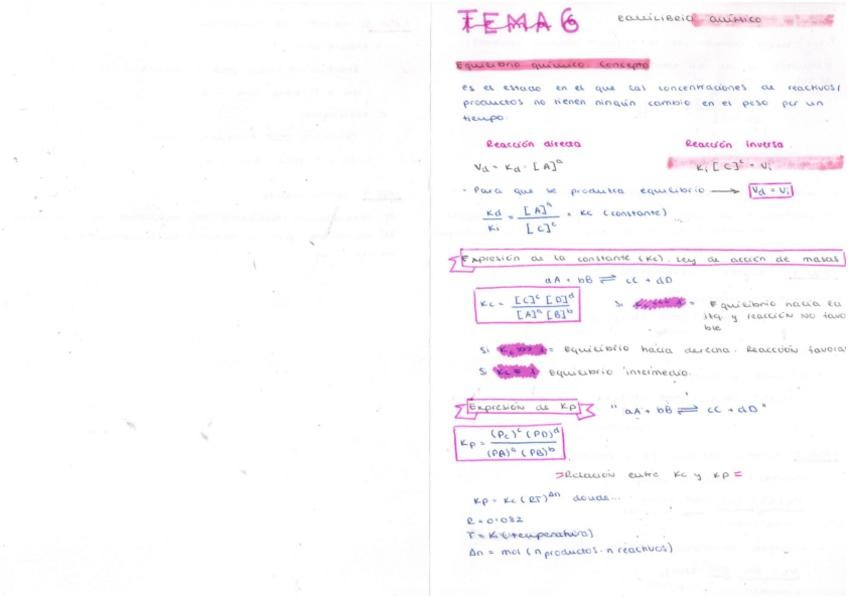 TEMA 6 EQUILIBRIO QUÍMICO
Equilibrio químico. Concepto
es el estado en el que las concentraciones de reactivos/
productos no tienen ningún cambio en el peso por un
tiempo.
Reacción directa Reacción inversa
Vd = Kd · [A]ᵃ Ki [C]ᶜ = Vi
· Para que se produzca equilibrio → Vd = Vi
Kd/Ki = [A]ᵃ/[C]ᶜ = Kc (constante)
Expresión de la constante (Kc). Ley de acción de masas
aA + bB ⇌ cC + dD
Kc = [C]ᶜ [D]ᵈ / [A]ᵃ [B]ᵇ Si = Equilibrio hacia la
izq. y reacción NO favora
ble
Si = Equilibrio hacia derecha. Reacción favora
Si Equilibrio intermedio.
Expresión de Kp " aA + bB ⇌ cC + dD "
Kp = (Pc)ᶜ (PD)ᵈ / (PA)ᵃ (PB)ᵇ
Relación entre Kc y Kp =
Kp = Kc (RT)^Δn donde...
R = 0.082
T = K (temperatura)
Δn = mol (n productos - n reactivos)